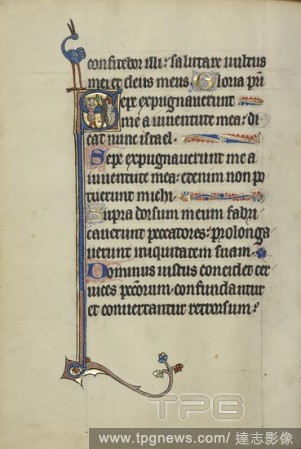 confitebor illi: salutare uultus
mei et deus meus Gloria pri
Sepe expugnauerunt
me a iuuentute mea: di
cat nunc israel.
Sepe expugnauerunt me a
iuuentute mea: etenim non po
tuerunt michi.
Supra dorsum meum fabri
cauerunt peccatores: prolonga
uerunt iniquitatem suam.
Dominus iustus concidet cer
uices pcc̄orum: confundantur
et conuertantur retrorsum:
TPG
www.tpgnews.com/ 達志影像